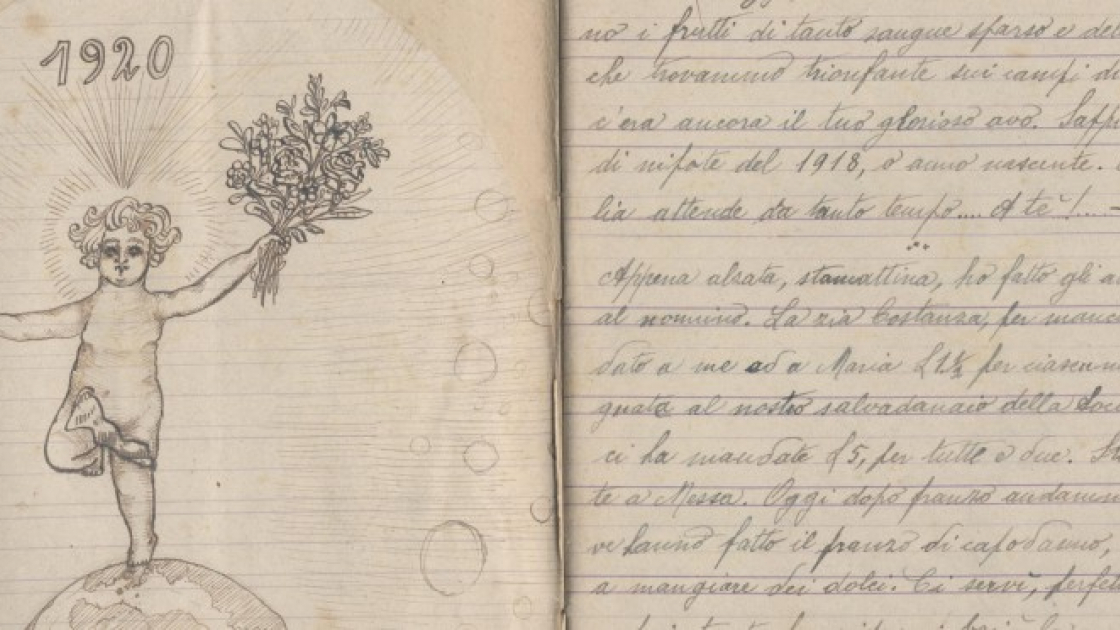 1920
no i frutti di tanto sangue sparso e del
che trovammo trionfante sui campi di
c'era ancora il tuo glorioso avo. Sapp
di nipote del 1918, o anno nascente.
lia attende da tanto tempo.... A te!... -
Appena alzata, stamattina, ho fatto gli a
al nonnino. La zia Costanza, per manc
dato a me ed a Maria £1½ per ciascun
gnata al nostro salvadanaio della
ci ha mandate £5, per tutte e due.
te a Messa. Oggi dopo pranzo andammo
ve hanno fatto il pranzo di capodanno,
a mangiare dei dolci. Ci servì, perfet